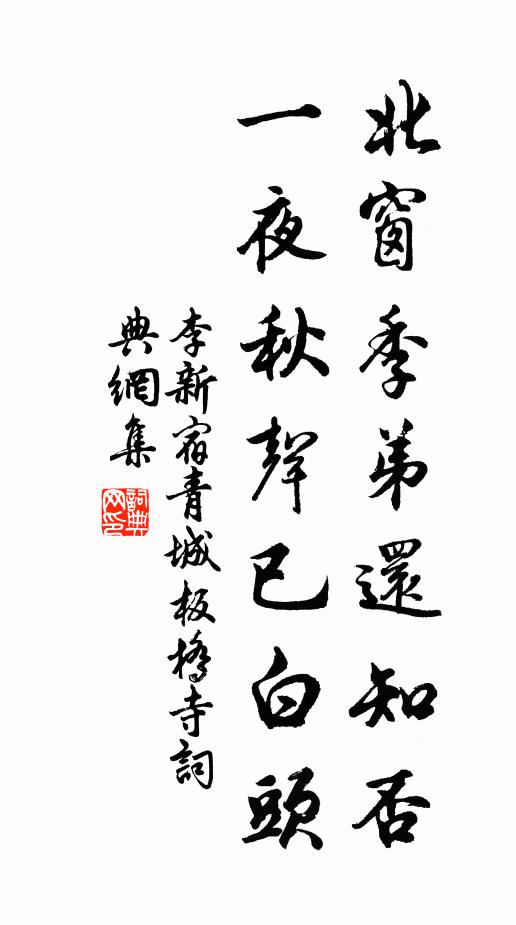 北窗季弟還知否
一夜秋聲已白頭
李新宿青城板橋寺詞
典網集
詞典
网印